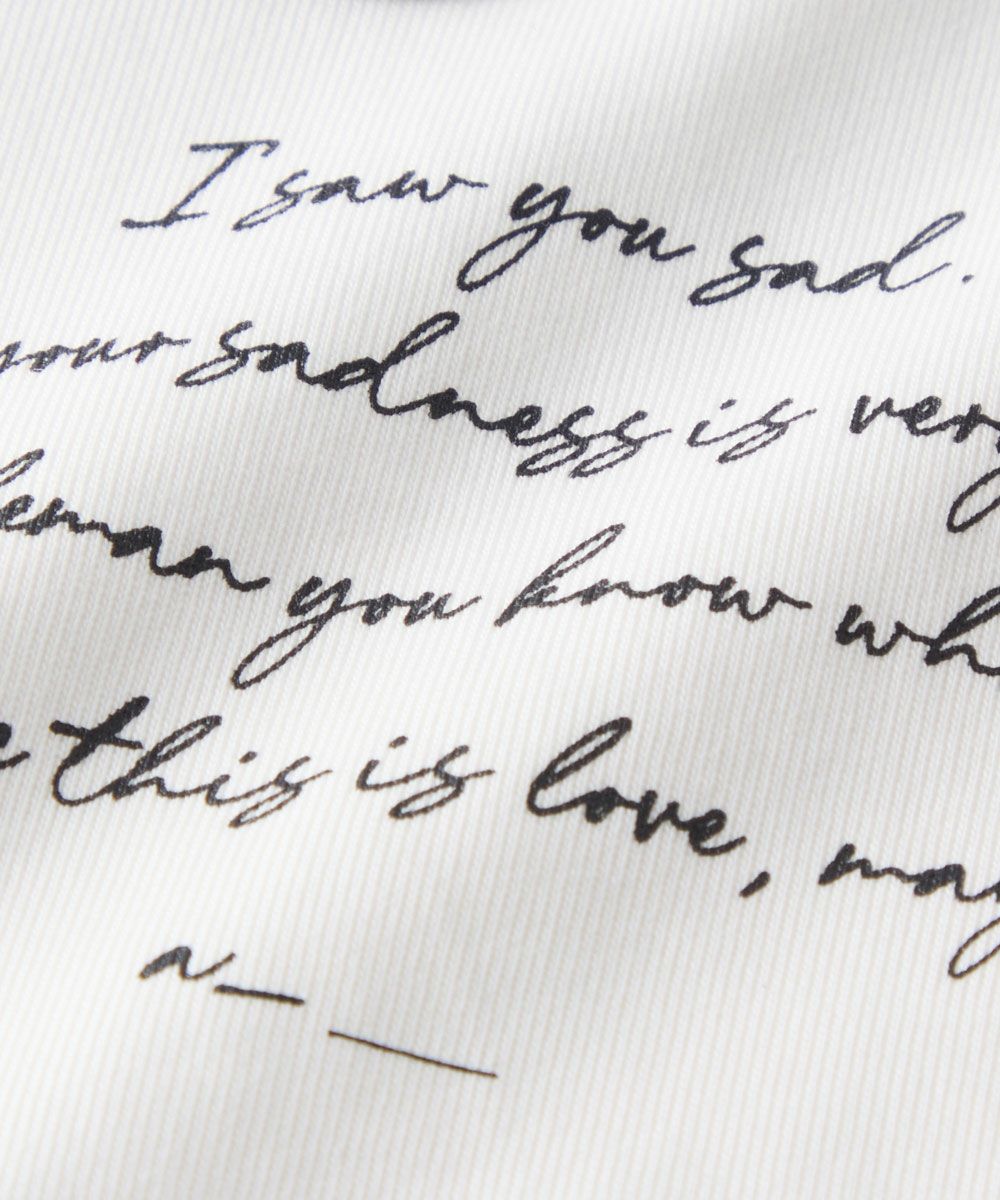 I saw you sad.
your sadness is very
you know
this is love,
a_ _